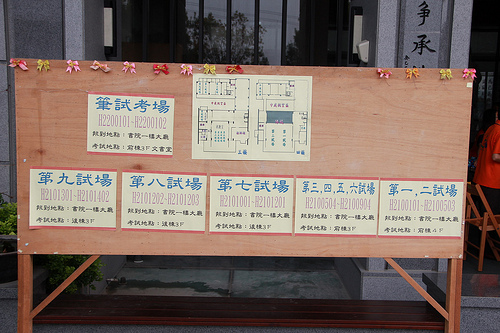 爭承
筆試考場
H2200101-H2200102
報到地點：書院一樓大廳
考試地點：前棟3F文書室
三樓
四樓
第九試場
H2101301-H2101402
報到地點：書院一樓大廳
考試地點：後棟3F
第八試場
H2101202-H2101203
報到地點：書院一樓大廳
考試地點：後棟3F
第七試場
H2101001-H2101201
報到地點：書院一樓大廳
考試地點：後棟3F
第三、四、五、六試場
H2100504-H2100904
報到地點：書院一樓大廳
考試地點：前棟3F
第一、二試場
H2100101-H2100503
報到地點：書院一樓大廳
考試地點：前棟4F